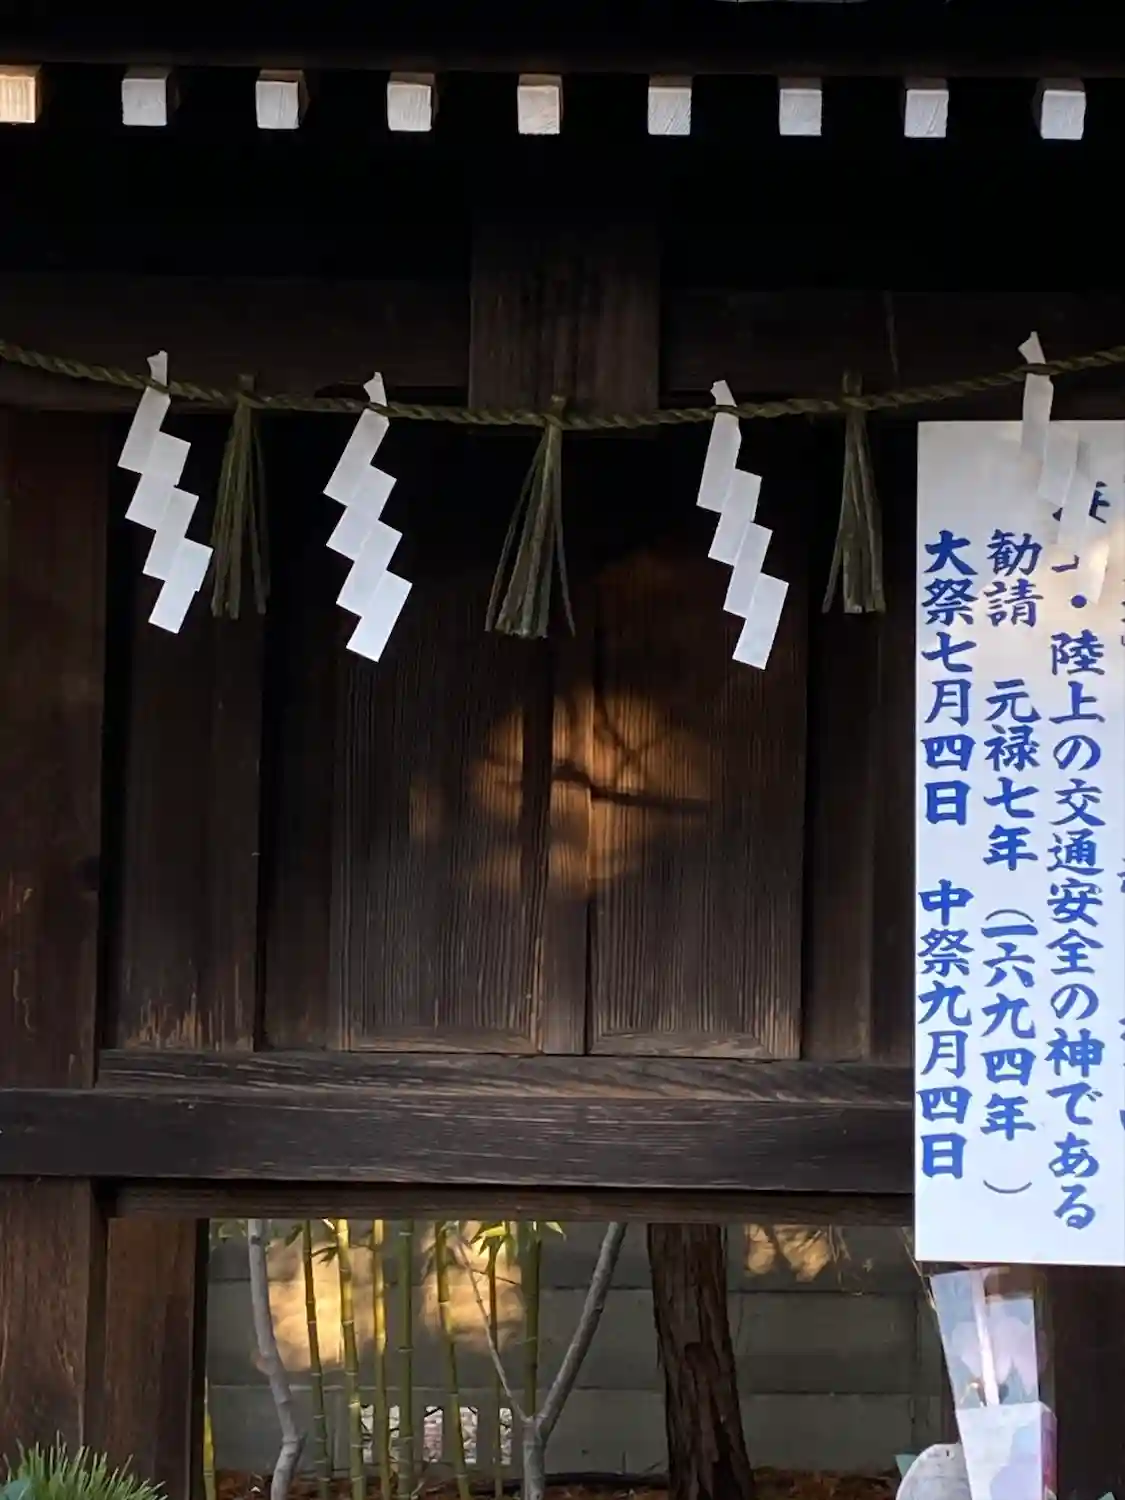 ・陸上の交通安全の神である
勧請 元禄七年(一六九四年)
大祭七月四日 中祭九月四日